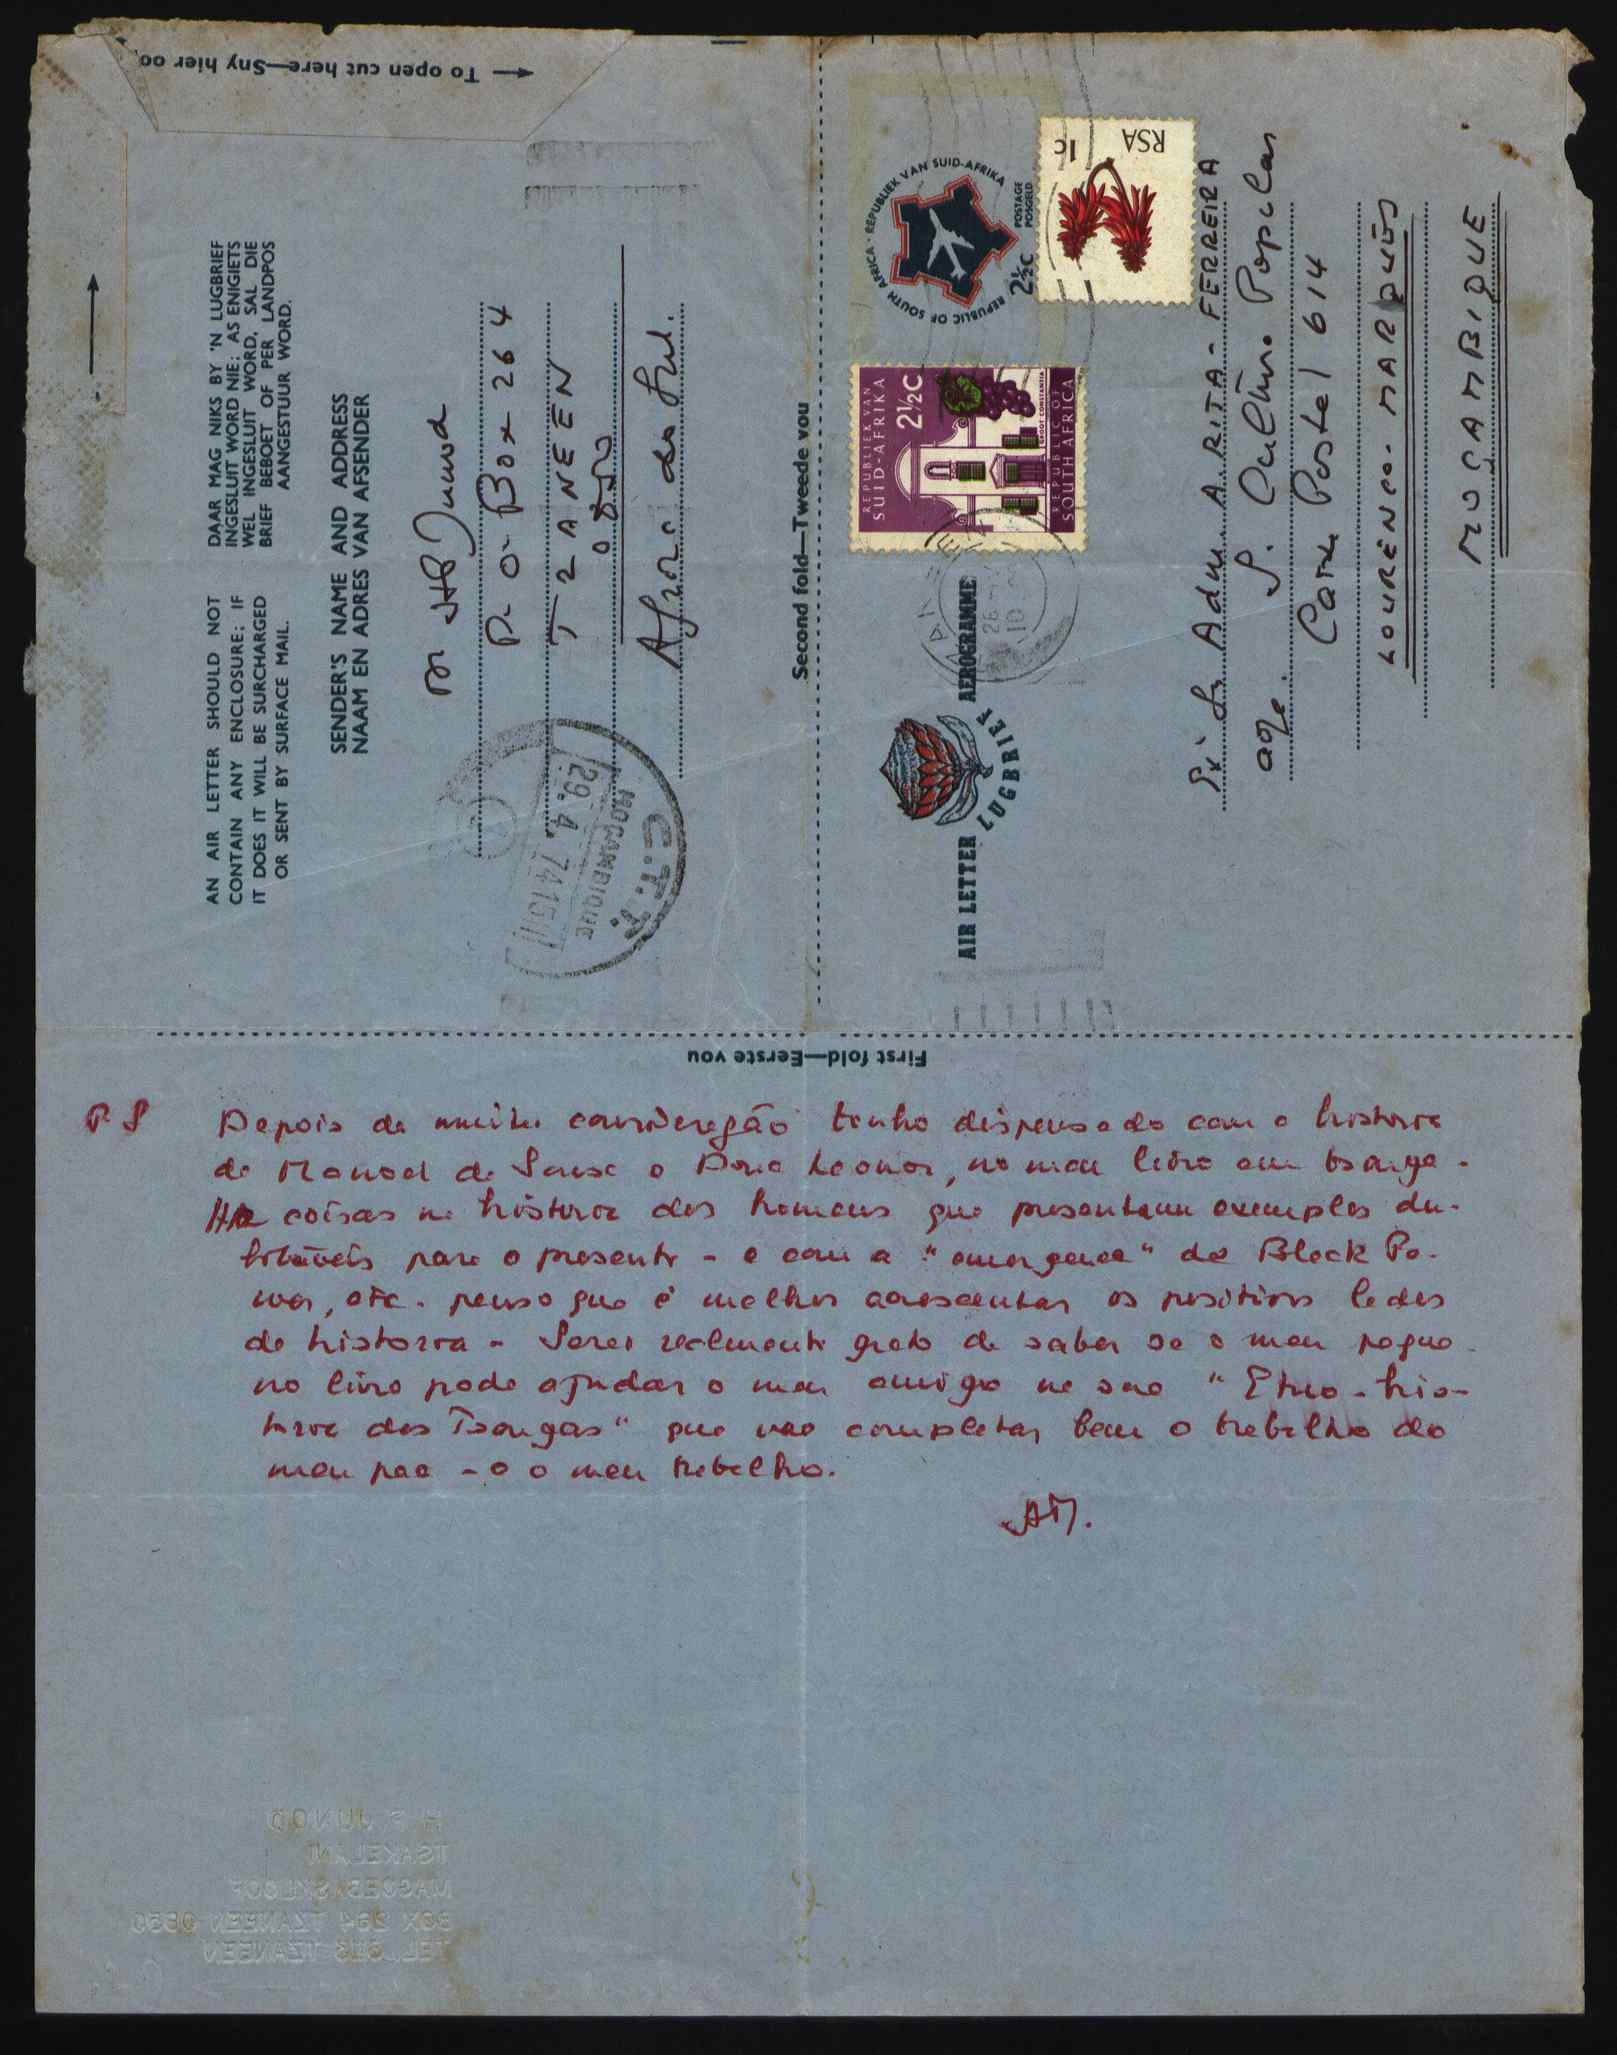 To open cut here—Sny hier oo
AN AIR LETTER SHOULD NOT
CONTAIN ANY ENCLOSURE; IF
IT DOES IT WILL BE SURCHARGED
OR SENT BY SURFACE MAIL.
DAAR MAG NIKS BY 'N LUGBRIEF
INGESLUIT WORD NIE; AS ENIGIETS
WEL INGESLUIT WORD, SAL DIE
BRIEF BEBOET OF PER LANDPOS
AANGESTUUR WORD.
SENDER'S NAME AND ADDRESS
NAAM EN ADRES VAN AFSENDER
Dr HP Junod
P. O. Box 264
TZANEEN
0850
Africa do Sul.
C.T.T.
MOÇAMBIQUE
29. 4. 74
Second fold—Tweede vou
REPUBLIC OF SOUTH AFRICA · REPUBLIEK VAN SUID-AFRIKA
POSTAGE
POSGELD
2½C
RSA 1c
REPUBLIEK VAN
SUID-AFRIKA
2½C
GROOT CONSTANTIA
REPUBLIC OF
SOUTH AFRICA
AIR LETTER AEROGRAMME
LUGBRIEF
Adm. A. RITA-FERREIRA
Caixa Postal 614
LOURENÇO-MARQUÊS
MOÇAMBIQUE
First fold—Eerste vou
PS Depois de muita consideração tenho dispensado com a historia
de Manoel de Sousa e Dona Leonor, no meu livro em tsonga.
Ha coisas na historia dos homens que presentam exemplos du-
bitáveis para o presente - e com a "emergence" do Black Po-
wer, etc. penso que é melhor acrescentar os positivos lados
da historia - Serei realmente grato de saber se o meu peque-
no livro pode ajudar o meu amigo na sua "Etno-his-
toria dos Tsongas" que vae completar bem o trabalho do
meu pae - e o meu trabalho.
H P JUNOD
TSAKELANI
MAGOEBASKLOOF
BOX 264 TZANEEN 0850